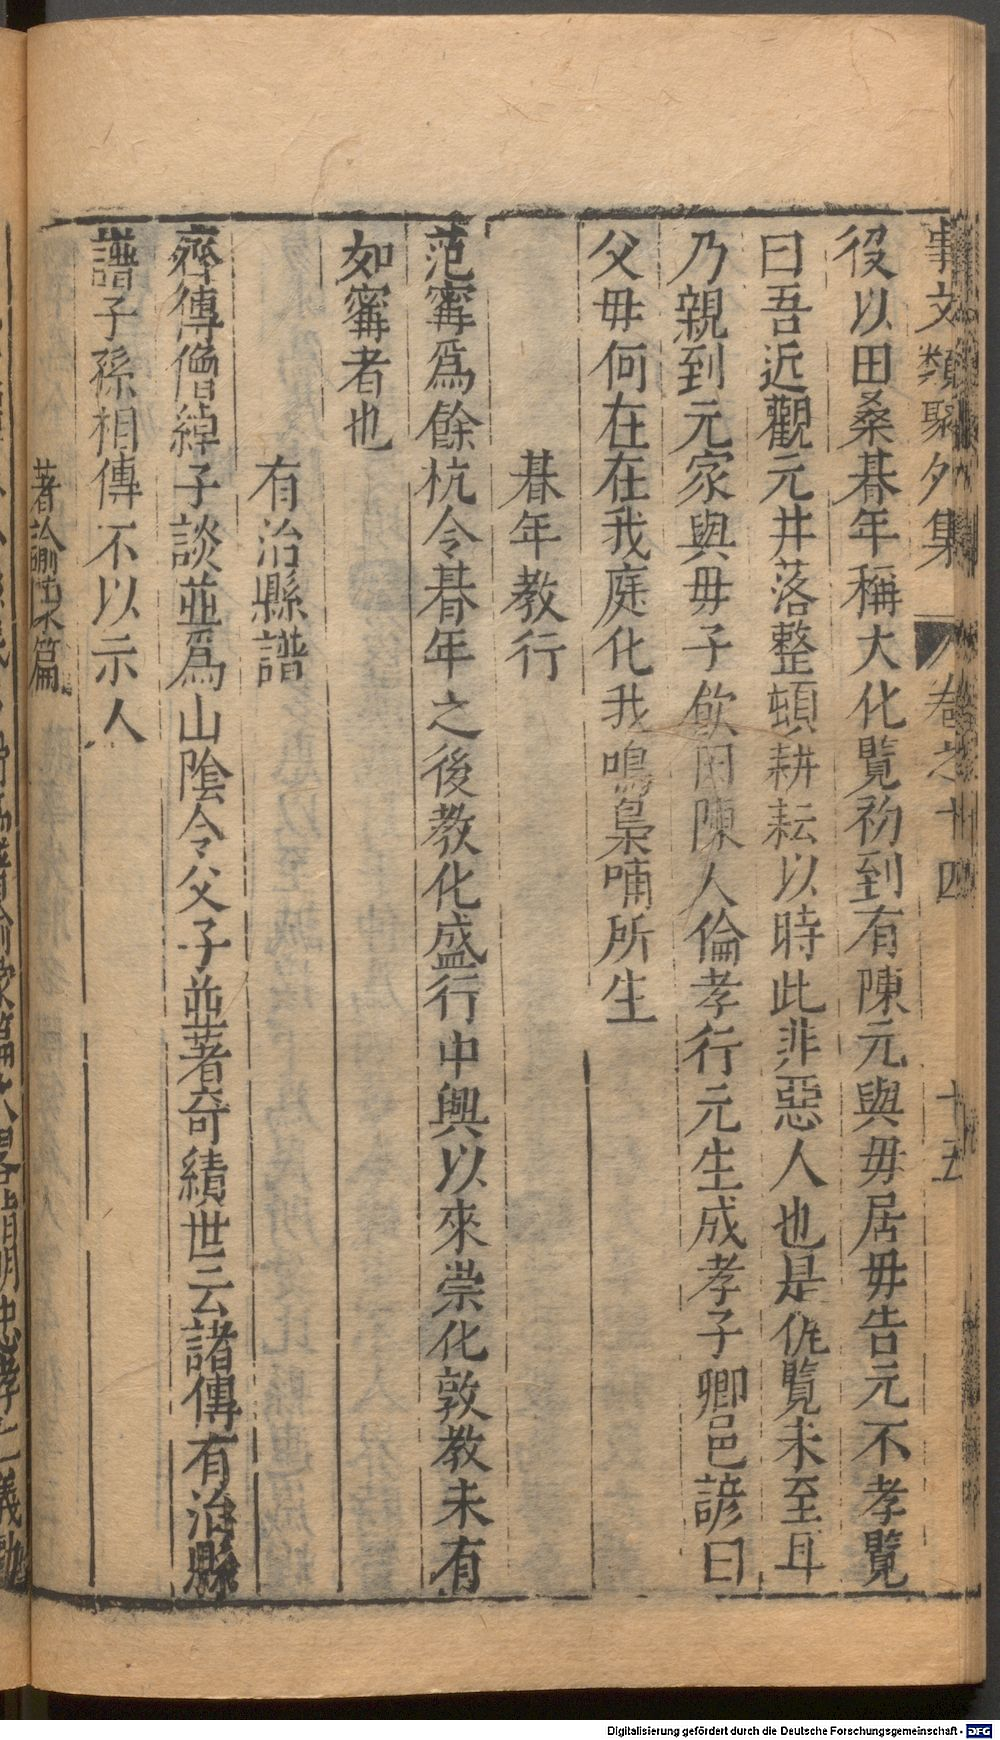 事文類聚外集 卷之十四 十五
役以田桑朞年稱大化覽初到有陳元與毋居毋告元不孝覽
曰吾近觀元井落整頓耕耘以時此非惡人也是仇覽未至耳
乃親到元家與毋子飲因陳人倫孝行元生成孝子鄉邑諺曰
父毋何在在我庭化我鳴梟哺所生
朞年教行
范甯爲餘杭令朞年之後教化盛行中興以來崇化敦教未有
如甯者也
有治縣譜
齊傅僧綽子談並爲山陰令父子並著奇績世云諸傅有治縣
譜子孫相傳不以示人
著諭蒙篇
Digitalisierung gefördert durch die Deutsche Forschungsgemeinschaft - DFG